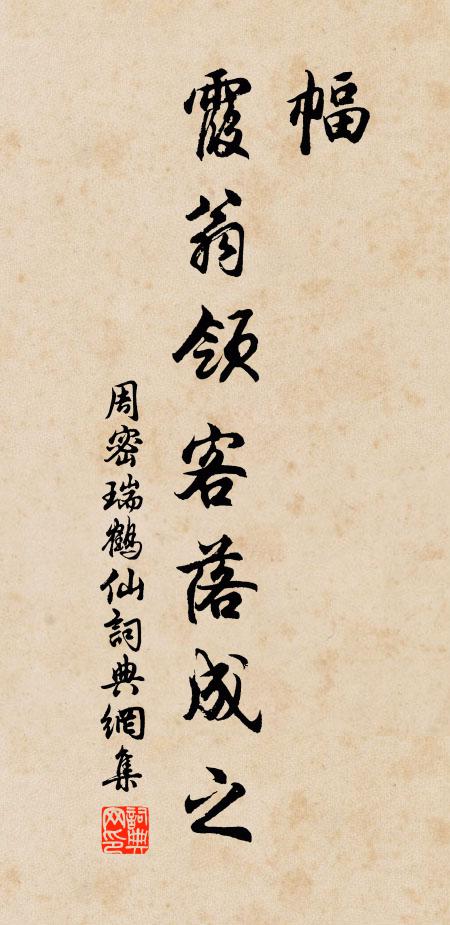 幅
霞翁領客落成之
周密瑞鶴仙詞典網集
詞典網印